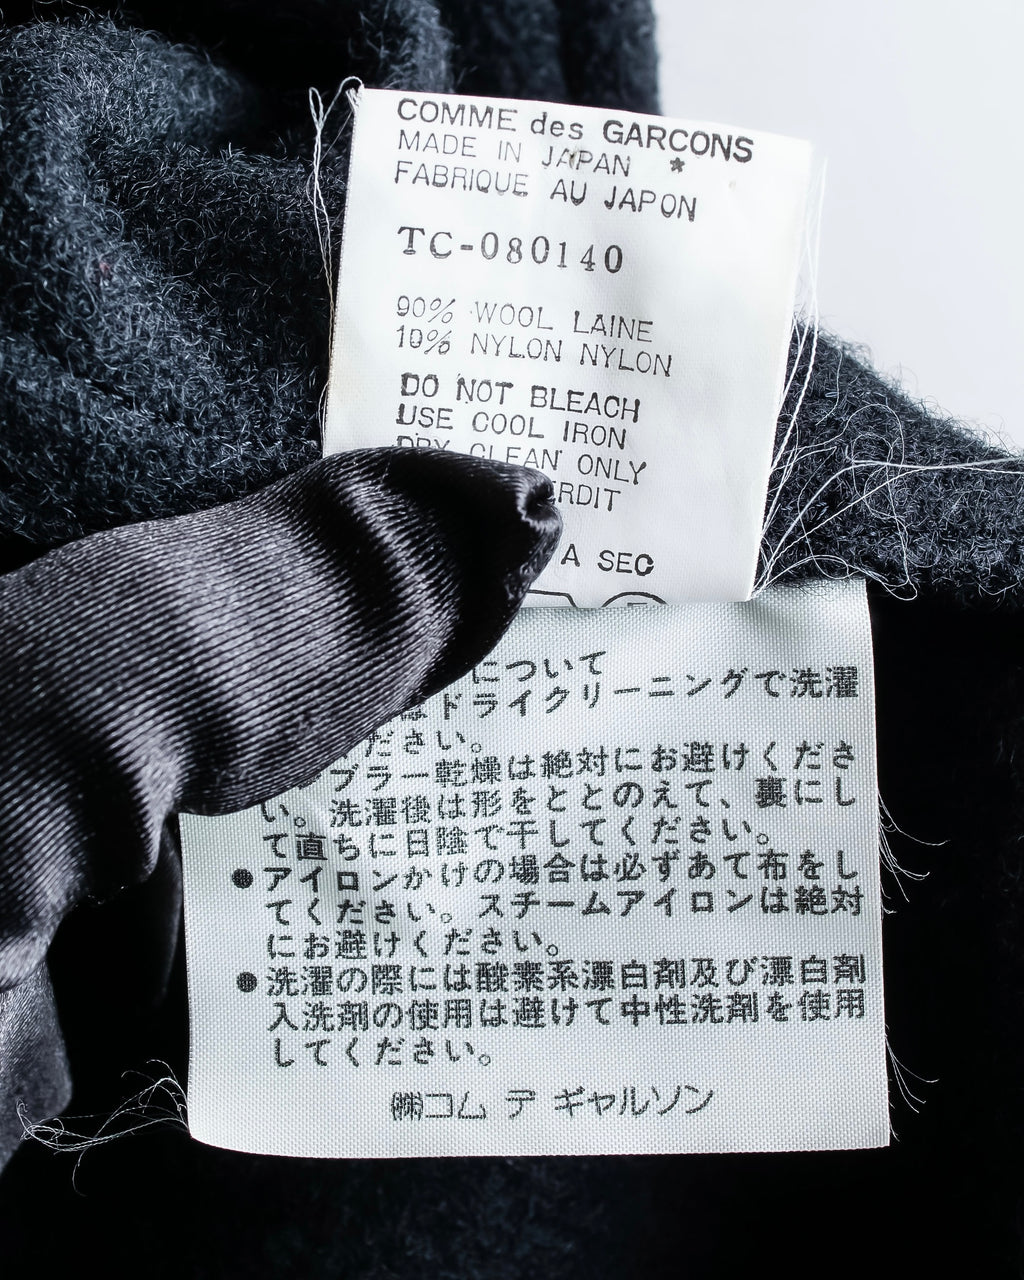 COMME des GARCONS
MADE IN JAPAN *
FABRIQUE AU JAPON
TC-080140
90% WOOL LAINE
10% NYLON NYLON
DO NOT BLEACH
USE COOL IRON
DRY CLEAN ONLY
A SEC
について
はドライクリーニングで洗濯
ださい。
ブラー乾燥は絶対にお避けくださ
い。洗濯後は形をととのえて、裏にし
て直ちに日陰で干してください。
●アイロンかけの場合は必ずあて布をし
てください。スチームアイロンは絶対
にお避けください。
●洗濯の際には酸素系漂白剤及び漂白剤
入洗剤の使用は避けて中性洗剤を使用
してください。
㈱コム デ ギャルソン